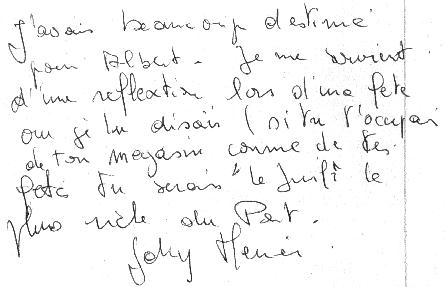 J'avais beaucoup d'estime
pour Albert. Je me souvient
d'une reflection lors d'une fete
ou je lui disais (si tu t'occupai
de ton magasin comme de tes
fetes tu serais "le Juif" le
plus riche du